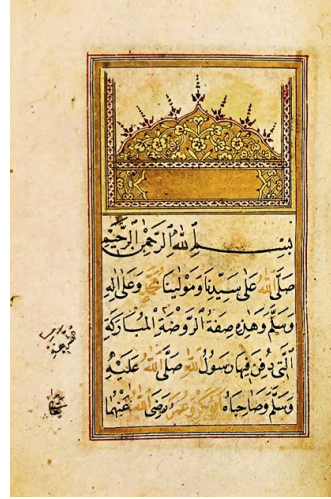 بِسْمِ ٱللَّهِ ٱلرَّحْمَٰنِ ٱلرَّحِيمِ
صَلَّى ٱللَّهُ عَلَى سَيِّدِنَا وَمَوْلَيْنَا مُحَمَّدٍ وَعَلَى اٰلِهِ
وَسَلَّمَ وَهٰذِهِ صِفَةُ ٱلرَّوْضَةِ ٱلْمُبَارَكَةِ
ٱلَّتِى دُفِنَ فِيهَا رَسُولُ ٱللَّهِ صَلَّى ٱللَّهُ عَلَيْهِ
وَسَلَّمَ وَصَاحِبَاهُ أَبُو بَكْرٍ وَعُمَرُ رَضِىَ ٱللَّهُ عَنْهُمَا